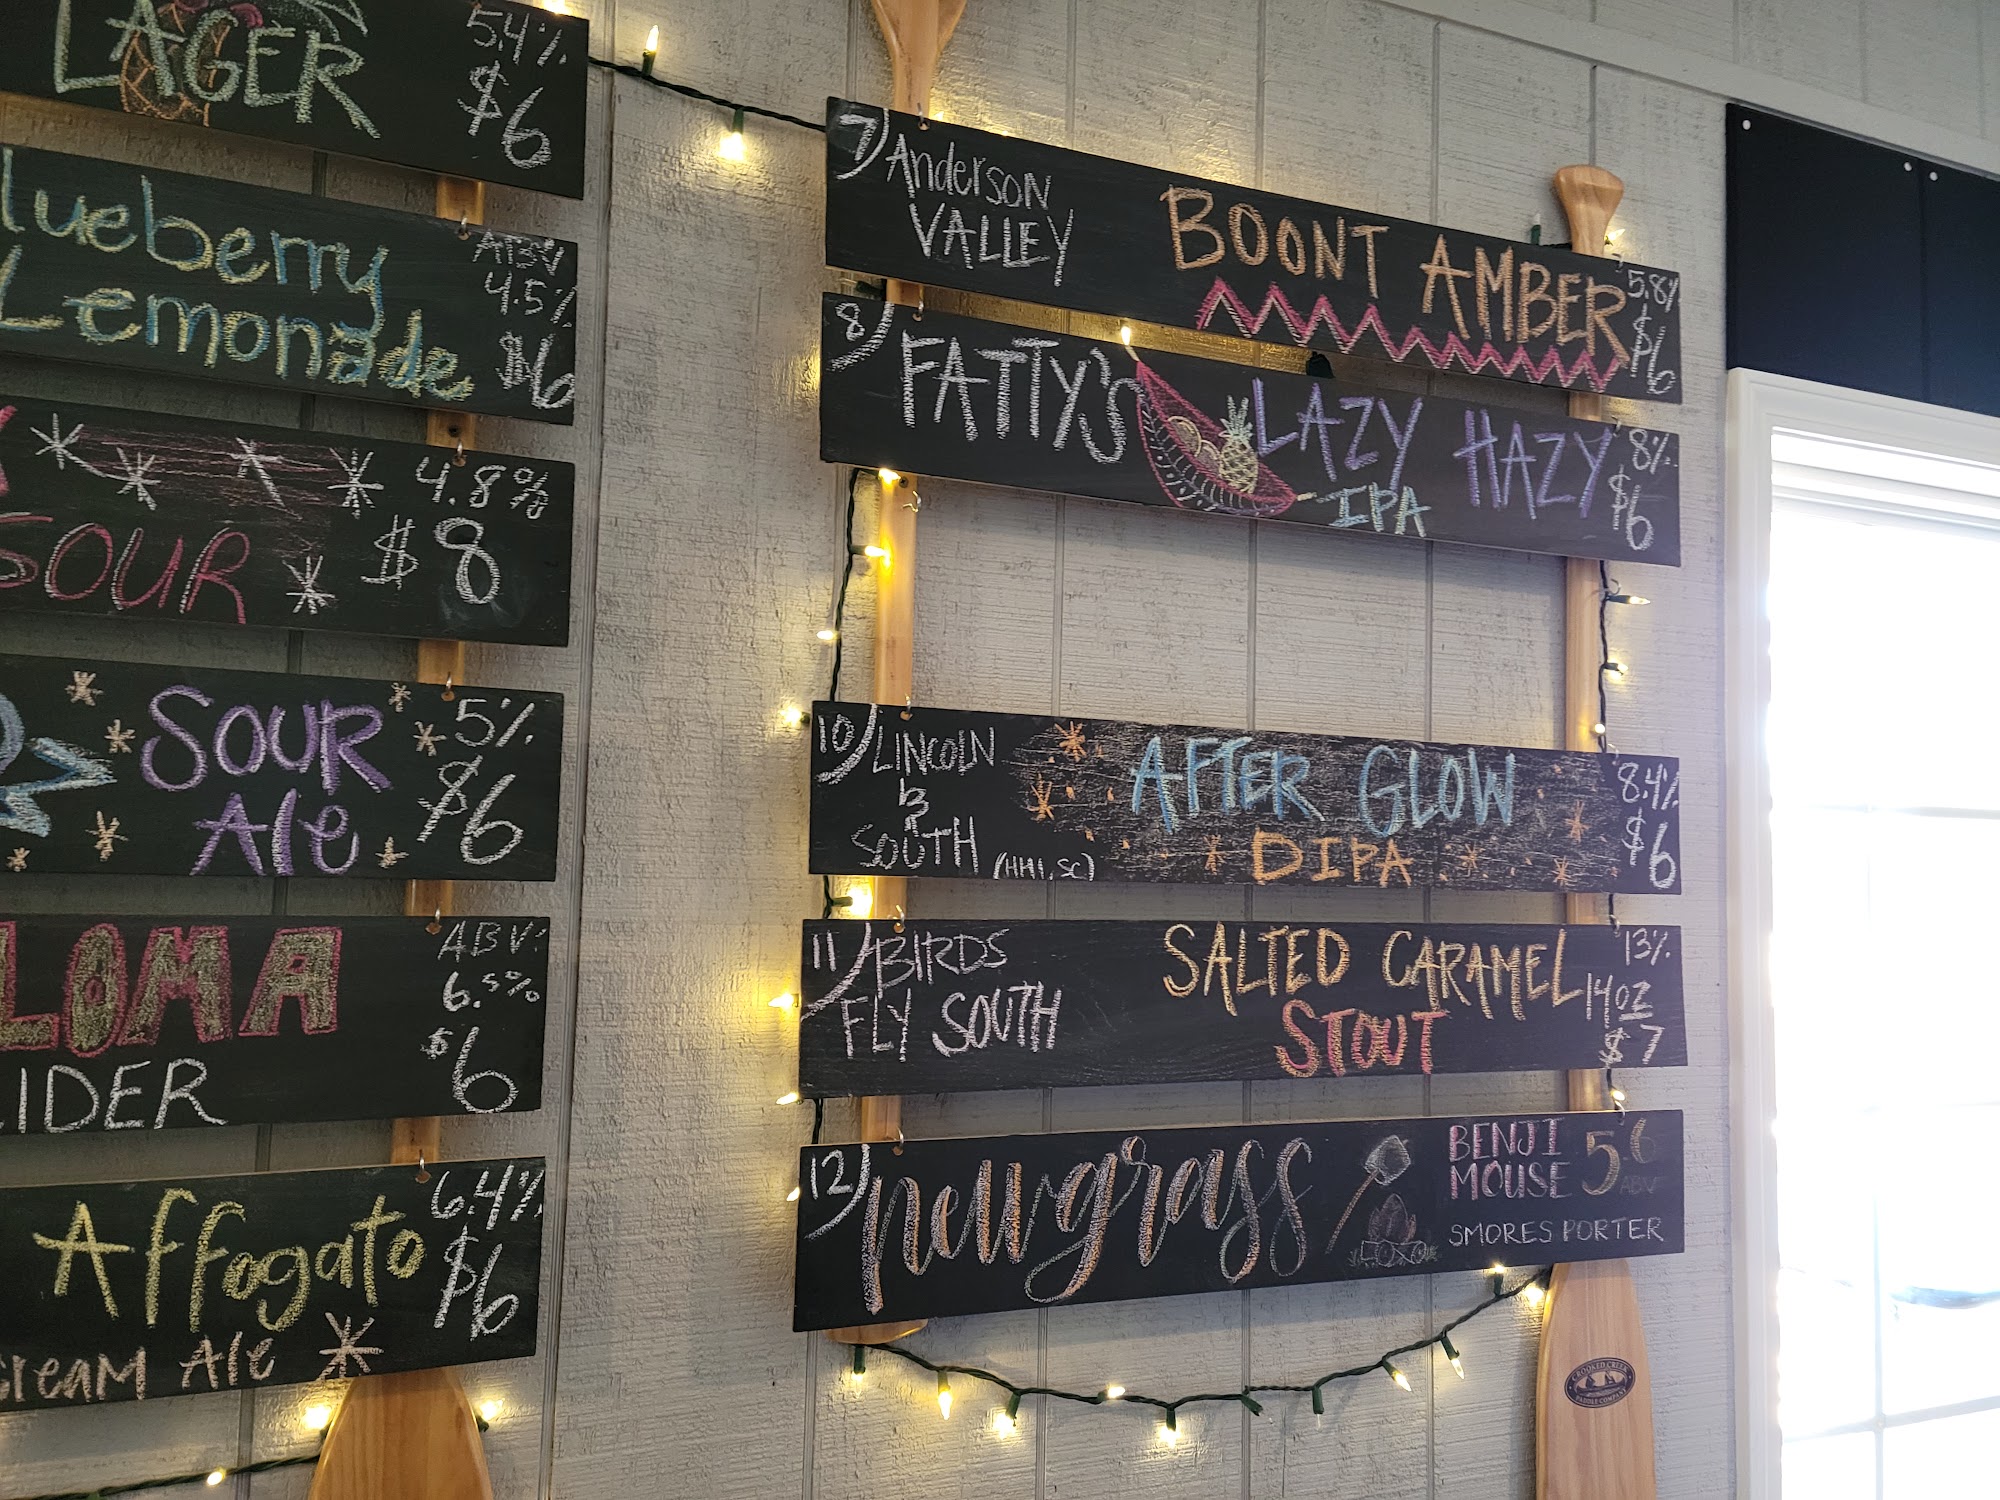 LAGER
5.4%
$6
lueberry
Lemonade
ABV
4.5%
$6
SOUR
4.8%
$8
SOUR
Ale
5%
$6
LOMA
IDER
ABV:
6.5%
$6
Affogato
cream Ale
6.4%
$6
7) Anderson
VALLEY
BOONT AMBER
5.8%
$6
8) FATTY'S
LAZY HAZY
IPA
8%
$6
10) LINCOLN
&
SOUTH (HHI, SC)
AFTER GLOW
DIPA
8.4%
$6
11) BIRDS
FLY SOUTH
SALTED CARAMEL
STOUT
13%
14oz
$7
12) newgrass
BENJI
MOUSE
5.6
ABV
SMORES PORTER
CROOKED CREEK
PADDLE COMPANY